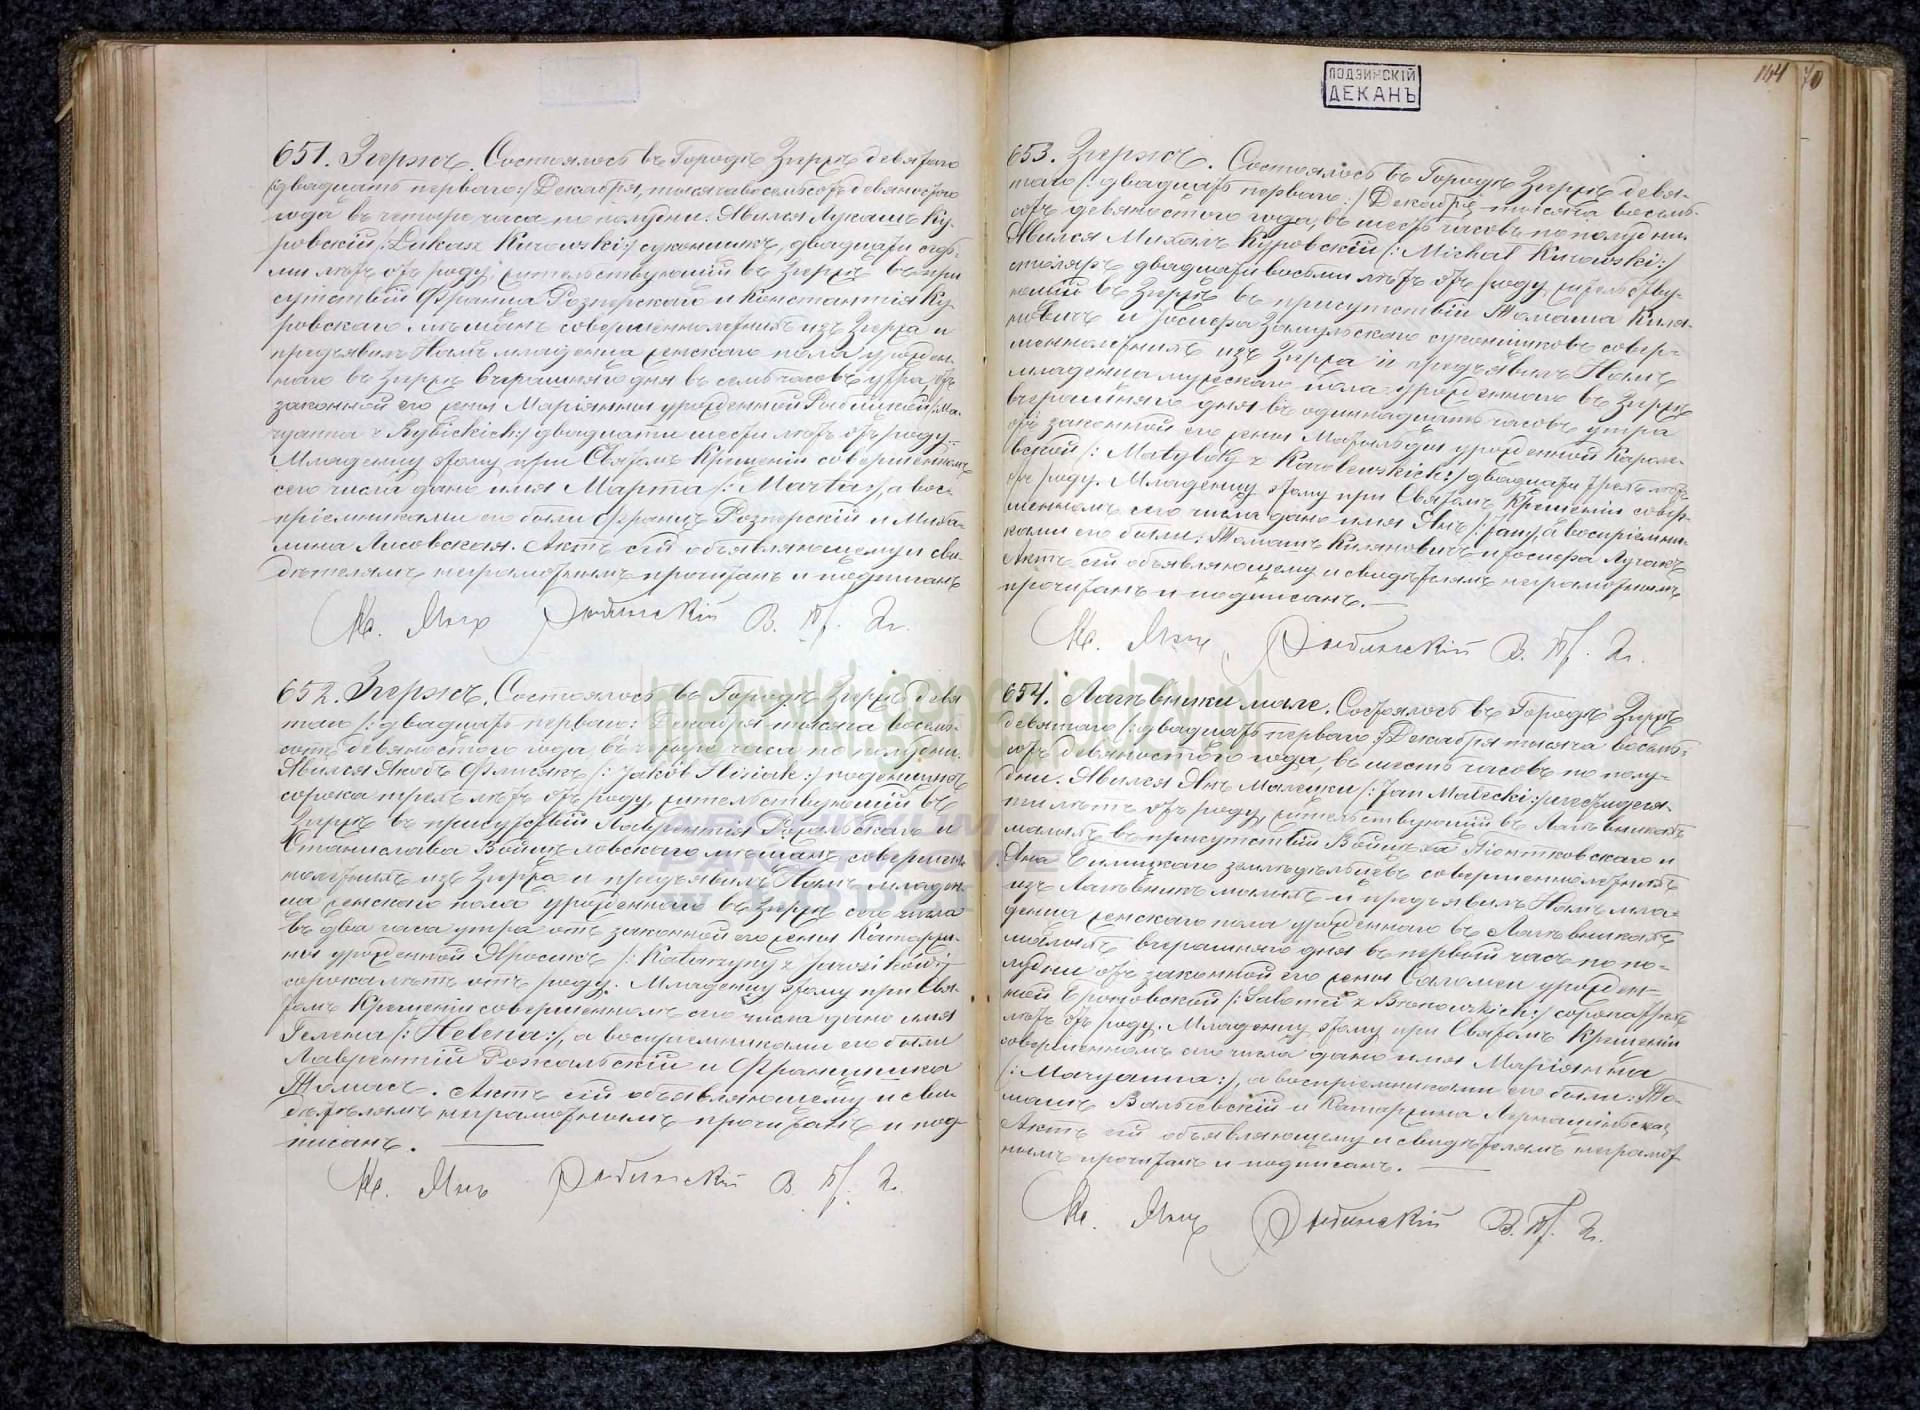 651. Згержъ. Состоялось въ Городѣ Згержѣ девятаго
/:двадцать перваго:/ Декабря, тысяча восемьсотъ девяностого
года въ четыре часа по полудни. Явился Лукашъ Ку-
ровскій /:Łukasz Kurowski:/ суконникъ, двадцати седь-
ми лѣтъ отъ роду, жительствующій въ Згержѣ въ при
сутствіи Франца Розперскаго и Константія Ку-
ровскаго мѣщанъ совершеннолѣтнихъ изъ Згержа и
предъявилъ Намъ младенца женскаго пола урожден-
ного въ Згержѣ вчерашняго дня въ семь часовъ утра, отъ
законной его жены Маріянны урожденной Рыбицкой /:Ma-
ryanna z Rybickich:/ двадцати шести лѣтъ отъ роду.
Младенцу этому при Святомъ Крещеніи совершенномъ
сего числа дано имя Марта /:Marta:/, а вос-
пріемниками его были Францъ Розперскій и Миха-
лина Лисовская. Актъ сей объявляющему и сви-
дѣтелямъ неграмотнымъ прочитанъ и подписанъ
652. Згержъ. Состоялось въ Городѣ Згержѣ девя
таго /:двадцать перваго:/ Декабря тысяча восемь-
сотъ девяностого года въ четыре часа по полудни.
Явился Якобъ Флисякъ /:Jakób Flisiak:/ поденщикъ
сорока трехъ лѣтъ отъ роду, жительствующій въ
Згержѣ въ присутствіи Лаврентія Рожальскаго и
Станислава мѣщанъ совершен-
нолѣтнихъ изъ Згержа и предъявилъ Намъ младен-
ца женскаго пола урожденного въ Згержѣ сего числа
въ два часа утра отъ законной его жены Катаржи-
ны урожденной Яросикъ /:Katarzyny z Jarosików:/
сорока лѣтъ отъ роду. Младенцу этому при Свя-
томъ Крещеніи совершенномъ сего числа дано имя
Гелена /:Helena:/, а воспріемниками его были
Лаврентій Рожальскій и Францишка
Томасъ. Актъ сей объявляющему и сви-
дѣтелямъ неграмотнымъ прочитанъ и под-
писанъ.
ЛОДЗИНСКІЙ
ДЕКАНЪ
144 70
653. Згержъ. Состоялось въ Городѣ Згержѣ девя-
таго /:двадцать перваго:/ Декабря тысяча восемь-
сотъ девяностого года, въ шесть часовъ по полудни.
Явился Михалъ Куровскій /:Michał Kurowski:/
столяръ двадцати восьми лѣтъ отъ роду, жительству-
ющій въ Згержѣ въ присутствіи Томаша Киля-
новичъ и Іосифа суконниковъ совер-
шеннолѣтнихъ изъ Згержа и предъявилъ Намъ
младенца мужескаго пола урожденного въ Згержѣ
вчерашняго дня въ одиннадцать часовъ утра
отъ законной его жены Матыльды урожденной Каролев-
ской /:Matyldy z Karolewskich:/ двадцати трехъ лѣтъ
отъ роду. Младенцу этому при Святомъ Крещеніи совер-
шенномъ сего числа дано имя Янъ /:Jan:/, а воспріемни-
ками его были: Томашъ Киляновичъ и Іосифа Лучакъ
Актъ сей объявляющему и свидѣтелямъ неграмотнымъ
прочитанъ и подписанъ.
654. Лагѣвники мале. Состоялось въ Городѣ Згержѣ
девятаго /:двадцать перваго:/ Декабря тысяча восемь-
сотъ девяностого года, въ шесть часовъ по полу-
дни. Явился Янъ Малецки /:Jan Malecki:/ шестидеся-
ти лѣтъ отъ роду, жительствующій въ Лагѣвникахъ
малыхъ въ присутствіи Войцѣха Піонтковскаго и
Яна земледѣльцевъ совершеннолѣтнихъ
изъ Лагѣвникъ малыхъ и предъявилъ Намъ мла-
денца женскаго пола урожденного въ Лагѣвникахъ
малыхъ вчерашняго дня въ первый часъ по по-
лудни отъ законной его жены Саломеи урожден-
ной Броновской /:Salomei z Bronowskich:/ сорока трехъ
лѣтъ отъ роду. Младенцу этому при Святомъ Крещеніи
совершенномъ сего числа дано имя Маріянна
/:Maryanna:/, а воспріемниками его были: То-
машъ и Катаржина
Актъ сей объявляющему и свидѣтелямъ неграмот
нымъ прочитанъ и подписанъ.
ARCHIWUM
PAŃSTWOWE
W ŁODZI